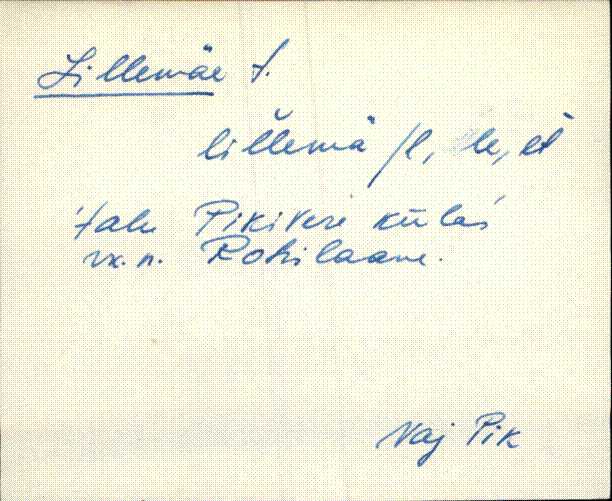 Lillemäe t.
lill̆emä /l, le, lt
talu Pikivere külas
vx. n. Rohilaane.
Naj Pik